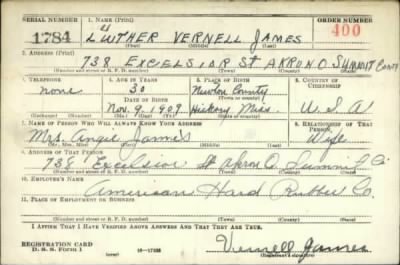 SERIAL NUMBER 1. NAME (Print) ORDER NUMBER
1784 LUTHER VERNELL JAMES 400
(First) (Middle) (Last)
2. ADDRESS (Print)
738 EXCELSIOR ST AKRON O SUMMIT County
(Number and street or R. F. D. number) (Town) (County) (State)
3. TELEPHONE 4. AGE IN YEARS 5. PLACE OF BIRTH 6. COUNTRY OF CITIZENSHIP
none 30 Newton County
DATE OF BIRTH (Town or county)
Nov. 9, 1909 Hickory Miss. U.S.A
(Exchange) (Number) (Mo.) (Day) (Yr.) (State or country)
7. NAME OF PERSON WHO WILL ALWAYS KNOW YOUR ADDRESS 8. RELATIONSHIP OF THAT PERSON
Mrs. Angie James Wife
(Mr., Mrs., Miss) (First) (Middle) (Last)
9. ADDRESS OF THAT PERSON
738 Excelsior St Akron O. Summit Co
(Number and street or R. F. D. number) (Town) (County) (State)
10. EMPLOYER'S NAME
American Hard Rubber Co.
11. PLACE OF EMPLOYMENT OR BUSINESS
(Number and street or R. F. D. number) (Town) (County) (State)
I AFFIRM THAT I HAVE VERIFIED ABOVE ANSWERS AND THAT THEY ARE TRUE.
REGISTRATION CARD
D. S. S. Form 1 (over) 16—17105 Vernell James
(Registrant's signature)